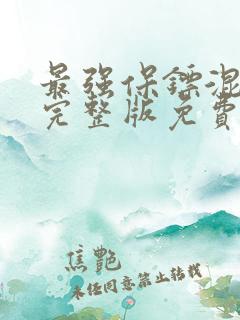 最强保镖混
完整版免费
焦艷
未经同意禁止转载